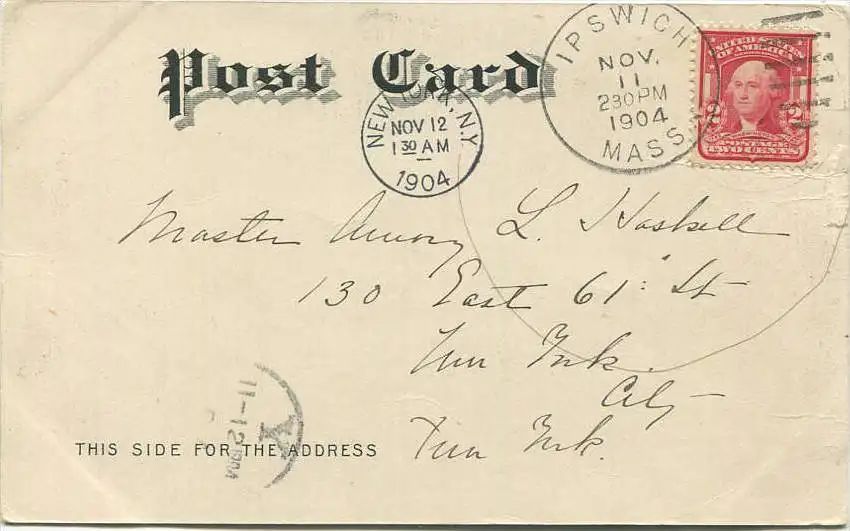 Post Card
IPSWICH
NOV.
11
230PM
1904
MASS.
UNITED STATES
OF AMERICA
2 2
POSTAGE
TWO CENTS
NEW YORK, N.Y.
NOV 12
1 30 AM
1904
Master Amory L. Haskell
130 East 61st St
New York
City
New York.
11-12 1904
Y
THIS SIDE FOR THE ADDRESS